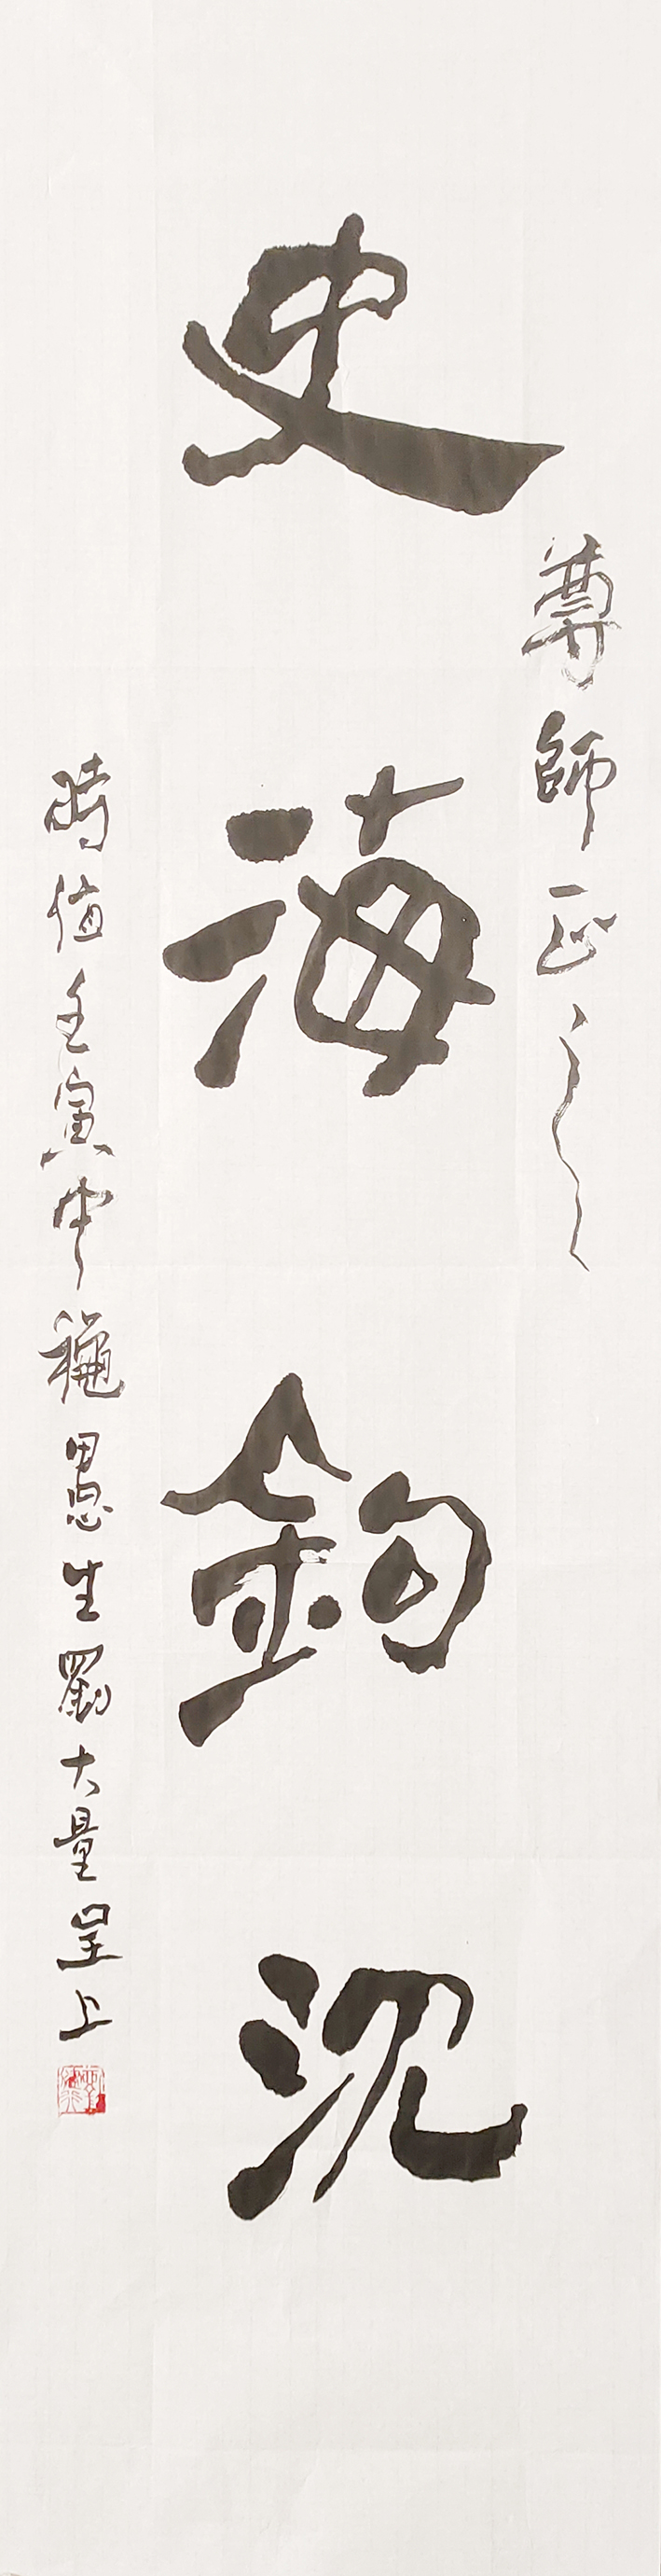 尊師正之
史海鈎沉
時值壬寅中龝愚生劉大量呈上